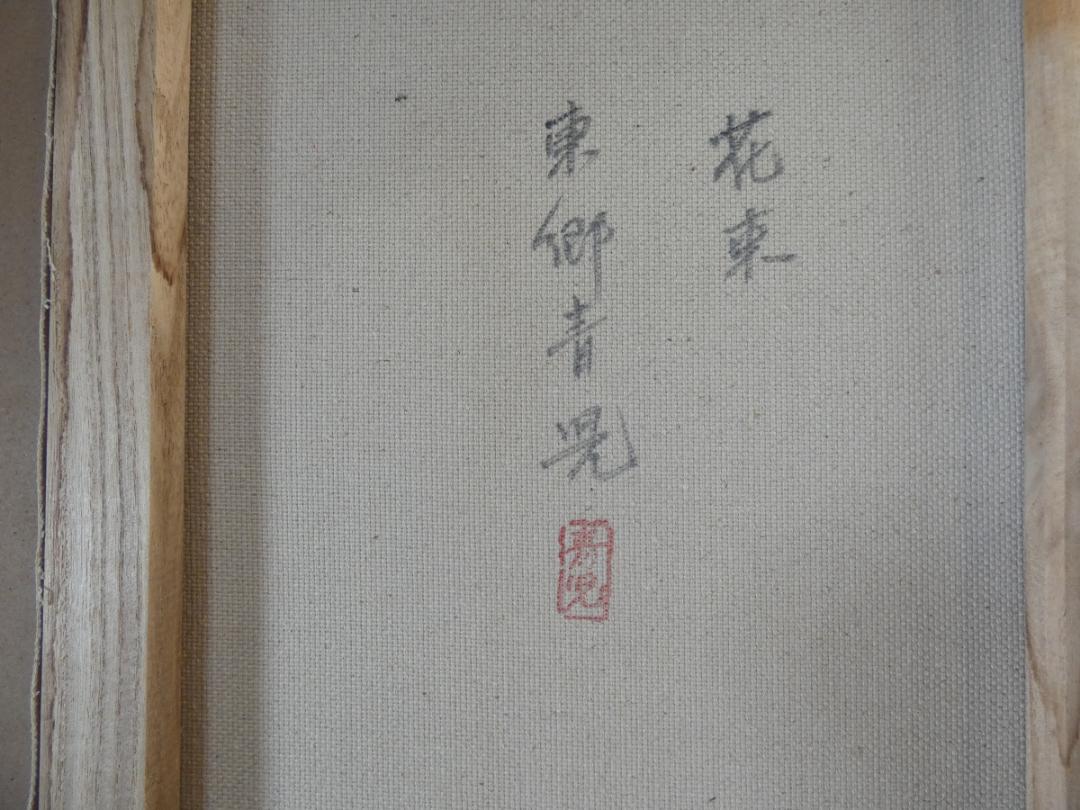 花束
東郷青児
青児